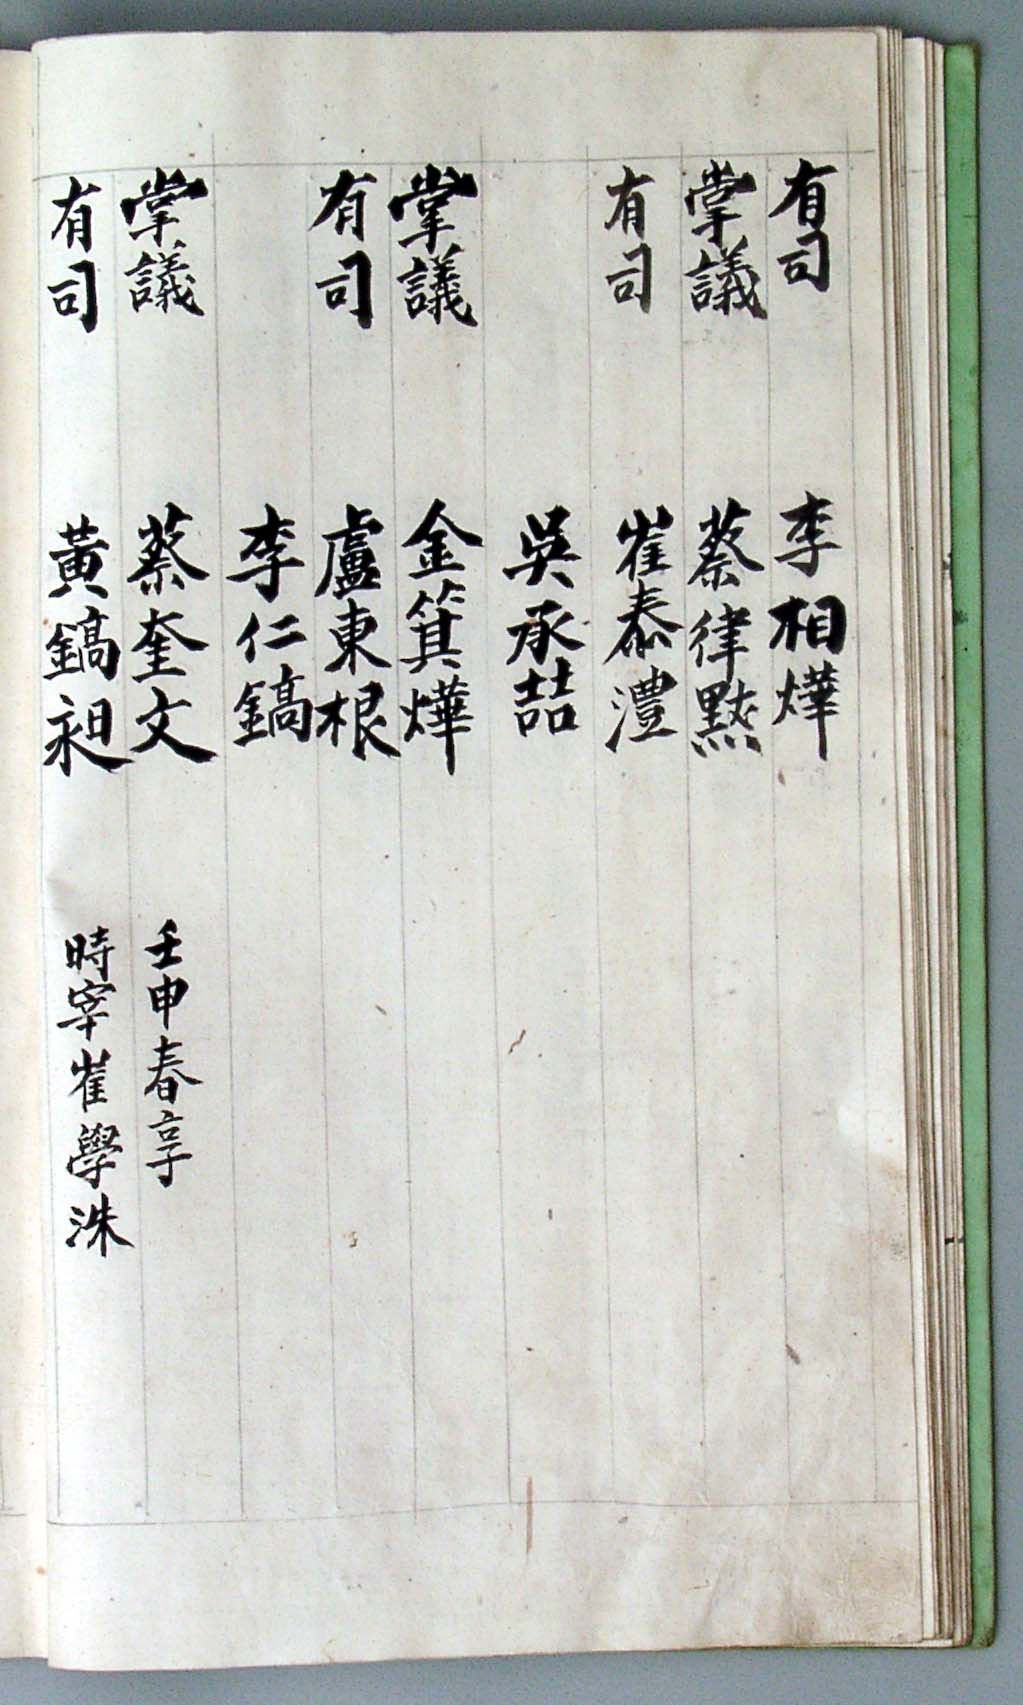 有司 李相燁
掌議 蔡律黙
有司 崔泰澧
吳承喆
金箕燁 掌議
有司 盧東根
李仁鎬
掌議 蔡奎文 壬申春享
有司 黃鎬昶 時宰崔學洙